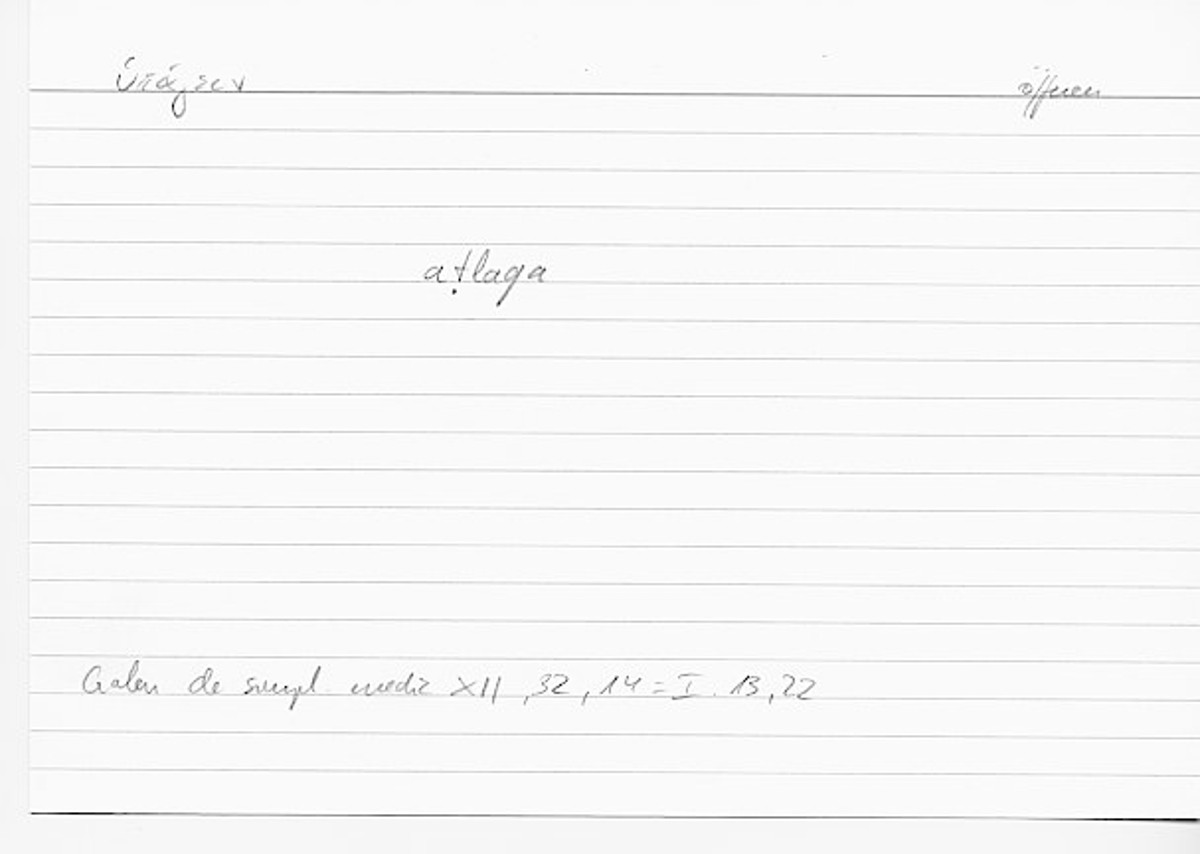 ὑπάγειν öffnen
aṭlaqa
Galen de simpl. medic XII, 32, 14 = I. 13,22